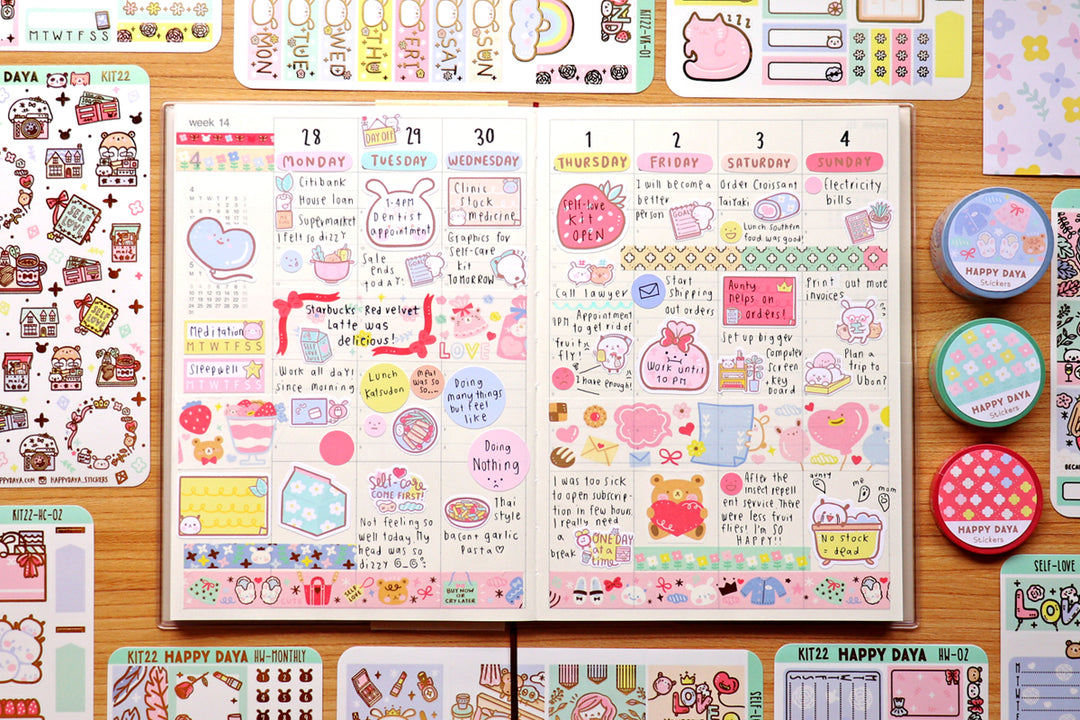 M T W T F S S
MON
TUE
WED
THU
FRI
SAT
SUN
KIT22-VA-01
zzz
DAYA
KIT22
SELF
LOVE
SELF
LOVE
HAPPYDAYA.COM
HAPPYDAYA_STICKERS
week 14
4
28
29
30
DAY OFF
MONDAY
TUESDAY
WEDNESDAY
Citibank
House loan
Supermarket
I felt so dizzy
1-4PM
Dentist
appointment
Clinic
stock
medicine
Sale
ends
today!
Graphics for
Self-care
kit
TOMORROW
Meditation
M T W T F S S
Sleepwell
M T W T F S S
Starbucks Red velvet
Latte was
delicious!
LOVE
Work all day!
since morning
Lunch
Katsudon
Meal
was so
so...
Doing
many things
but feel
like
Doing
Nothing
Self-care
COME FIRST!
Not feeling so
well today. My
head was so
dizzy @_@
Thai
style
bacon garlic
Pasta
CUTE
SELF
LOVE
BUY NOW
OR
CRY LATER
1
2
3
4
THURSDAY
FRIDAY
SATURDAY
SUNDAY
Self-love
kit
OPEN
I will become a
better
person
GOALS
Order Croissant
Taiyaki
Lunch southern
food was good!
Electricity
bills
Call lawyer
Start
Shipping
out orders
Aunty
helps on
orders!
Print out more
invoices
1PM Appointment
to get rid of
fruit
fly!
I have enough!
Work until
10 PM
Set up bigger
Computer
screen
+key
board
Plan a
trip to
Ubon?
I was too sick
to open subscrip-
tion in few hours.
I really need
a
break
ONE DAY
at a
time
After the
insect repell
ent service. There
were less fruit
flies! I'm SO
HAPPY!!
aunty
me
mom
No stock
= dead
HAPPY DAYA
Stickers
HAPPY DAYA
Stickers
HAPPY DAYA
Stickers
KIT22-HC-02
KIT22 HAPPY DAYA HW-MONTHLY
SELF-L
KIT22 HAPPY DAYA HW-02
SELF-LOVE
LOVE